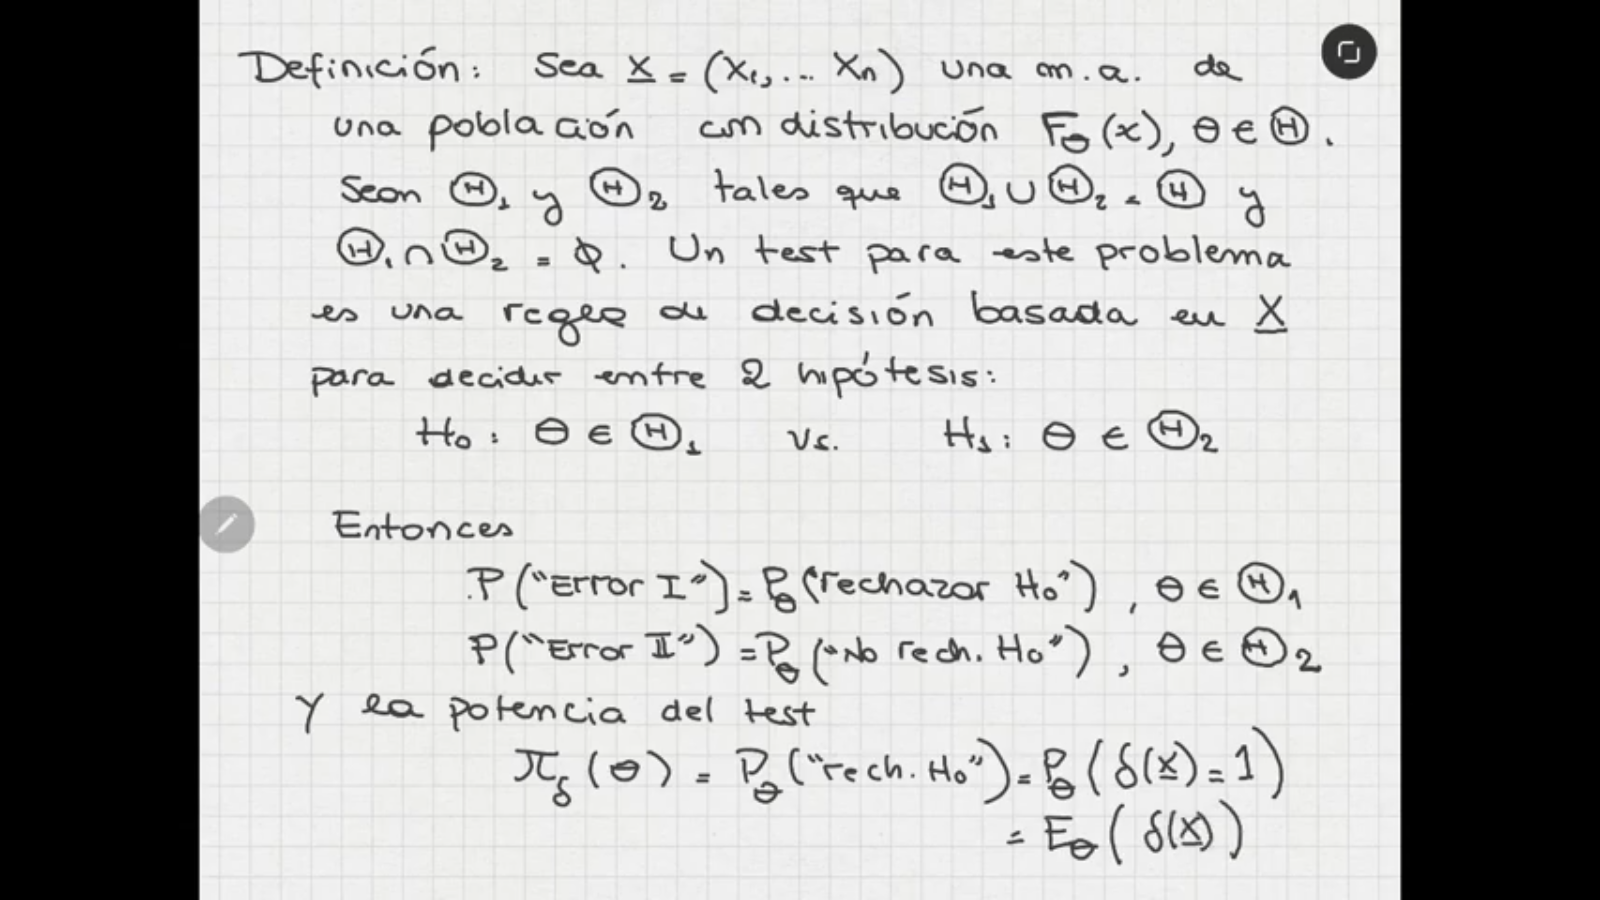 Definición: Sea X̲ = (X₁, ... Xₙ) una m.a. de
una población con distribución F_θ(x), θ ∈ Θ.
Sean Θ₁ y Θ₂ tales que Θ₁ ∪ Θ₂ = Θ y
Θ₁ ∩ Θ₂ = ϕ. Un test para este problema
es una regla de decisión basada en X̲
para decidir entre 2 hipótesis:
H₀: θ ∈ Θ₁ vs. H₁: θ ∈ Θ₂
Entonces
P("Error I") = P_θ(rechazar H₀"), θ ∈ Θ₁
P("Error II") = P_θ("No rech. H₀"), θ ∈ Θ₂
Y la potencia del test
π_δ(θ) = P_θ("rech. H₀") = P_θ(δ(X̲) = 1)
= E_θ(δ(X̲))